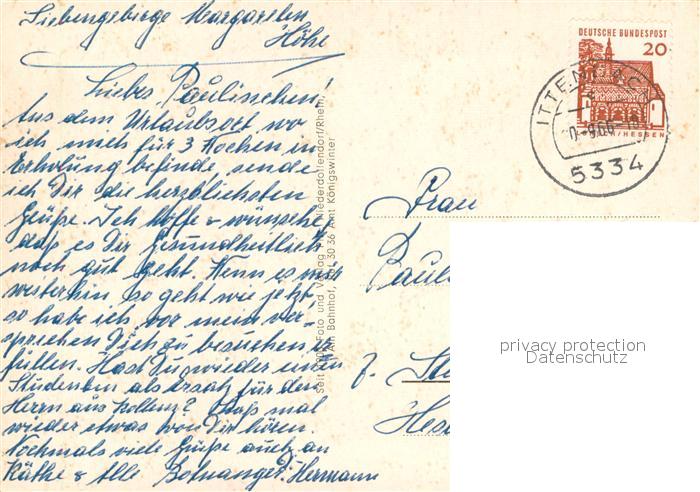 Siebengebirge Margareten
Höhe
Liebes Paulinchen!
Aus dem Urlaubsort, wo
ich mich für 3 Wochen in
Erholung befinde, sende
ich Dir die herzlichsten
Grüße. Ich hoffe & wünsche,
daß es Dir Gesundheitlich
noch gut geht. Wenn es mir
weiterhin so geht wie jetzt,
so habe ich vor mein Ver-
sprechen Dich zu besuchen
füllen. Hast Du wieder einen
Studenten als Ersatz für den
Herrn aus
Laß mal
wieder etwas von Dir hören.
Nochmals viele Grüße auch an
Käthe & Alle
Hermann
Foto und Verlag
Niederdollendorf/Rhein,
Am Bahnhof,
30 36 Amt Königswinter
DEUTSCHE BUNDESPOST
20
/HESSEN
ITTENBACH
5334
Frau
Paul
privacy protection
Datenschutz